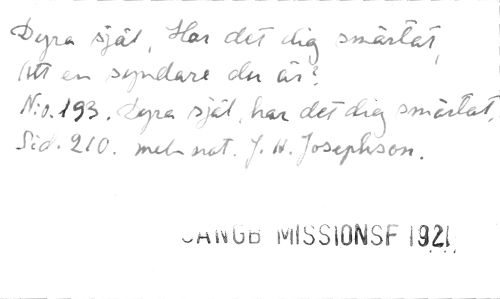 Dyra själ, Har det dig smärtat,
Att en syndare du är?
N:o.193. Dyra själ, har det dig smärtat,
Sid. 210. med not. J. H. Josephson.
SANGB MISSIONSF 1921